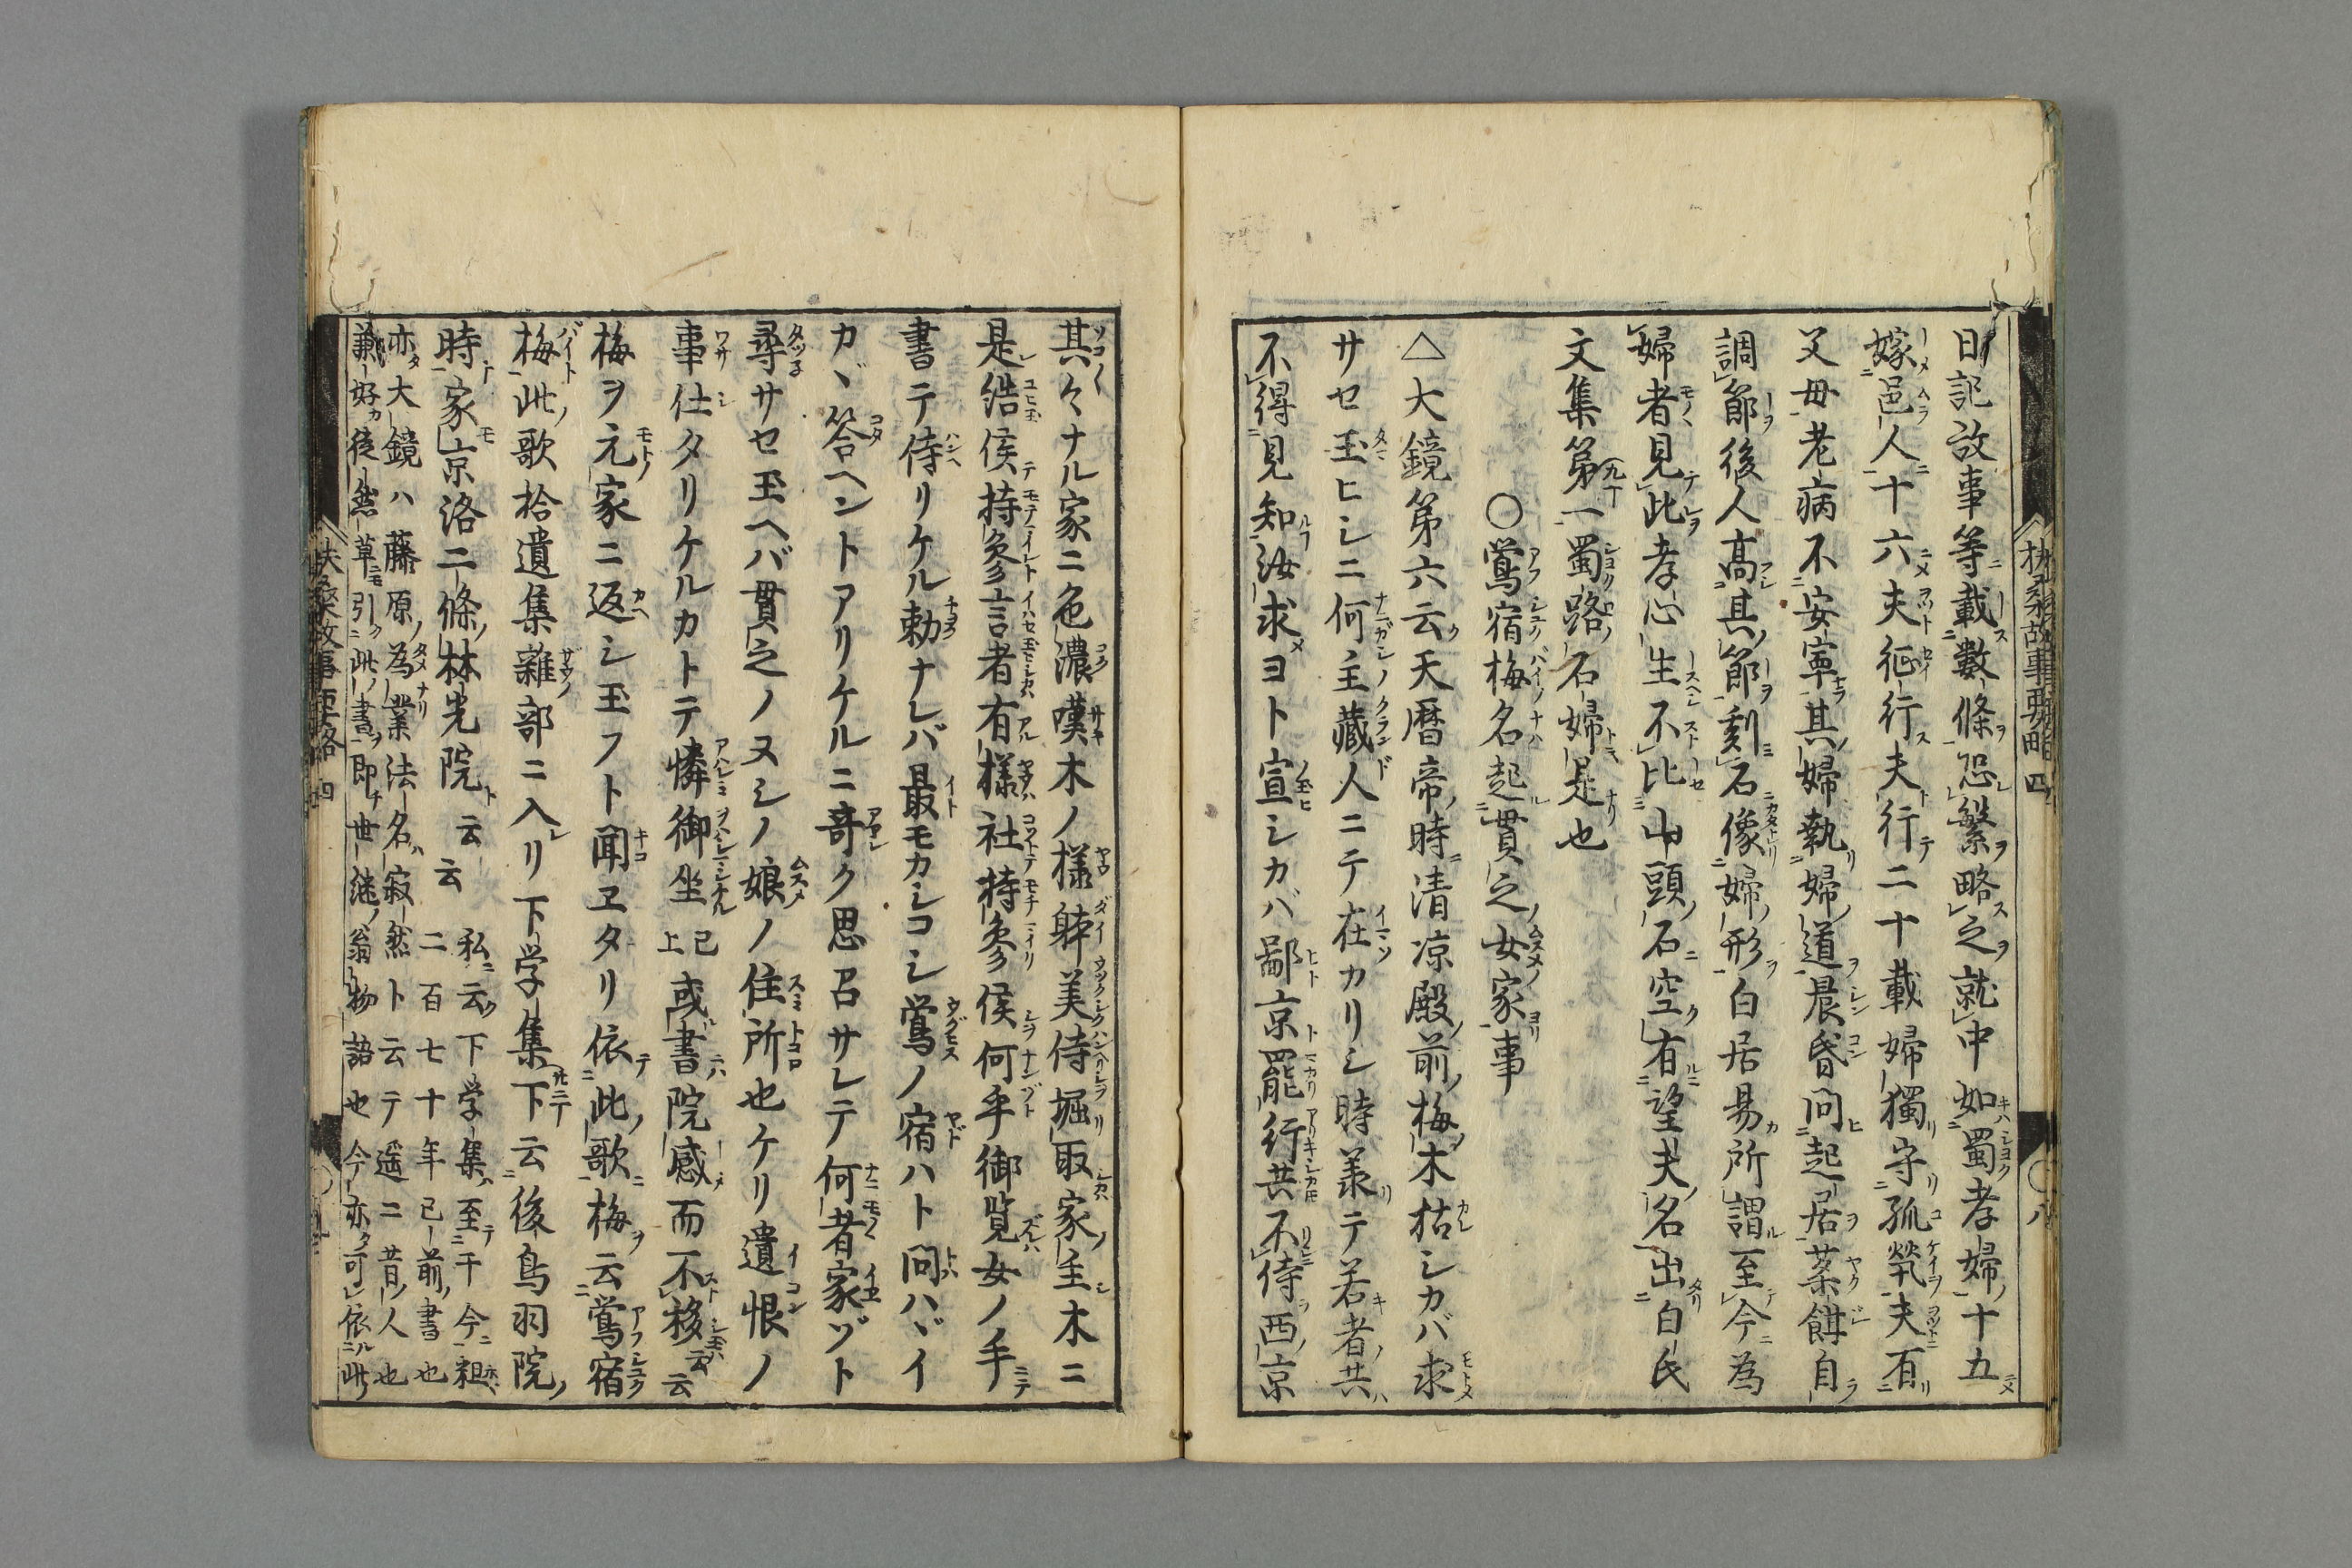 日記故事等載數條恐繁略之就中如蜀孝婦十五
嫁邑人十六夫征行夫行二十載婦獨守孤煢夫有
父母老病不安寧其婦執婦道晨昏問起居薬餌自
調節後人高其節刻石像婦形白居易所謂至今為
婦者見此孝心生不比山頭石空有望夫名出白氏
文集第一蜀路石婦是也
○鶯宿梅名起貫之女家事
△大鏡第六云天暦帝時清凉殿前梅木枯シカバ求
サセ玉ヒシニ何主藏人ニテ在カリシ時羕テ若者共
不得見知汝求ヨト宣シカバ鄙京罷行共不侍西京
扶桑故事要略 四 ○八
其々ナル家ニ色濃嘆木ノ様躰美侍堀取家主木ニ
是結侯持參言者有様社持參侯何乎御覧女ノ手
書テ侍リケル勅ナレバ最モカシコシ鶯ノ宿ハト問ハヾイ
カヾ答ヘントアリケルニ竒ク思召サレテ何者家ゾト
尋サセ玉ヘバ貫之ノヌシノ娘ノ住所也ケリ遺恨ノ
事仕タリケルカトテ憐御坐已上或書院感而不移云云
梅ヲ元家ニ返シ玉フト聞ヱタリ依此歌梅云鶯宿
梅此歌拾遺集雜部ニ入リ下学集下云後鳥羽院
時家京洛二條林光院云云
私云下学集至于今
二百七十年已前書也
亦大鏡ハ藤原為業法名寂然ト云テ遥ニ昔人也
兼好徒然草引此書即世継翁物語也今亦可依此
扶桑故事要略 四